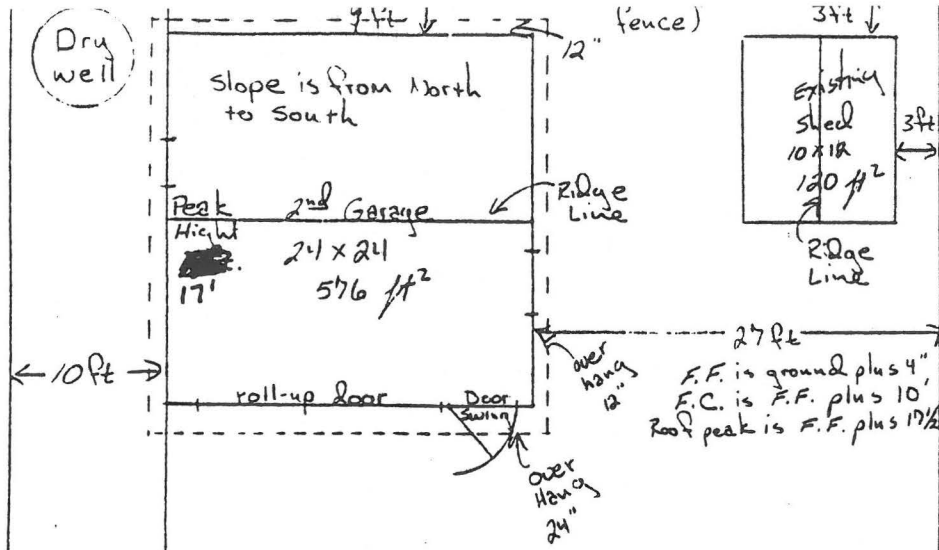 Dry
well
9 ft
12"
fence)
3ft
Slope is from North
to South
Existing
Shed
10 x 12
120 ft²
3ft
Ridge
Line
Peak
Hieght
17'
2nd Garage
24 x 24
576 ft²
Ridge
Line
10ft
27 ft
over
hang
12"
F.F. is ground plus 4"
F.C. is F.F. plus 10'
Roof peak is F.F. plus 17 1/2
roll-up door
Door
Swing
over
Hang
24"